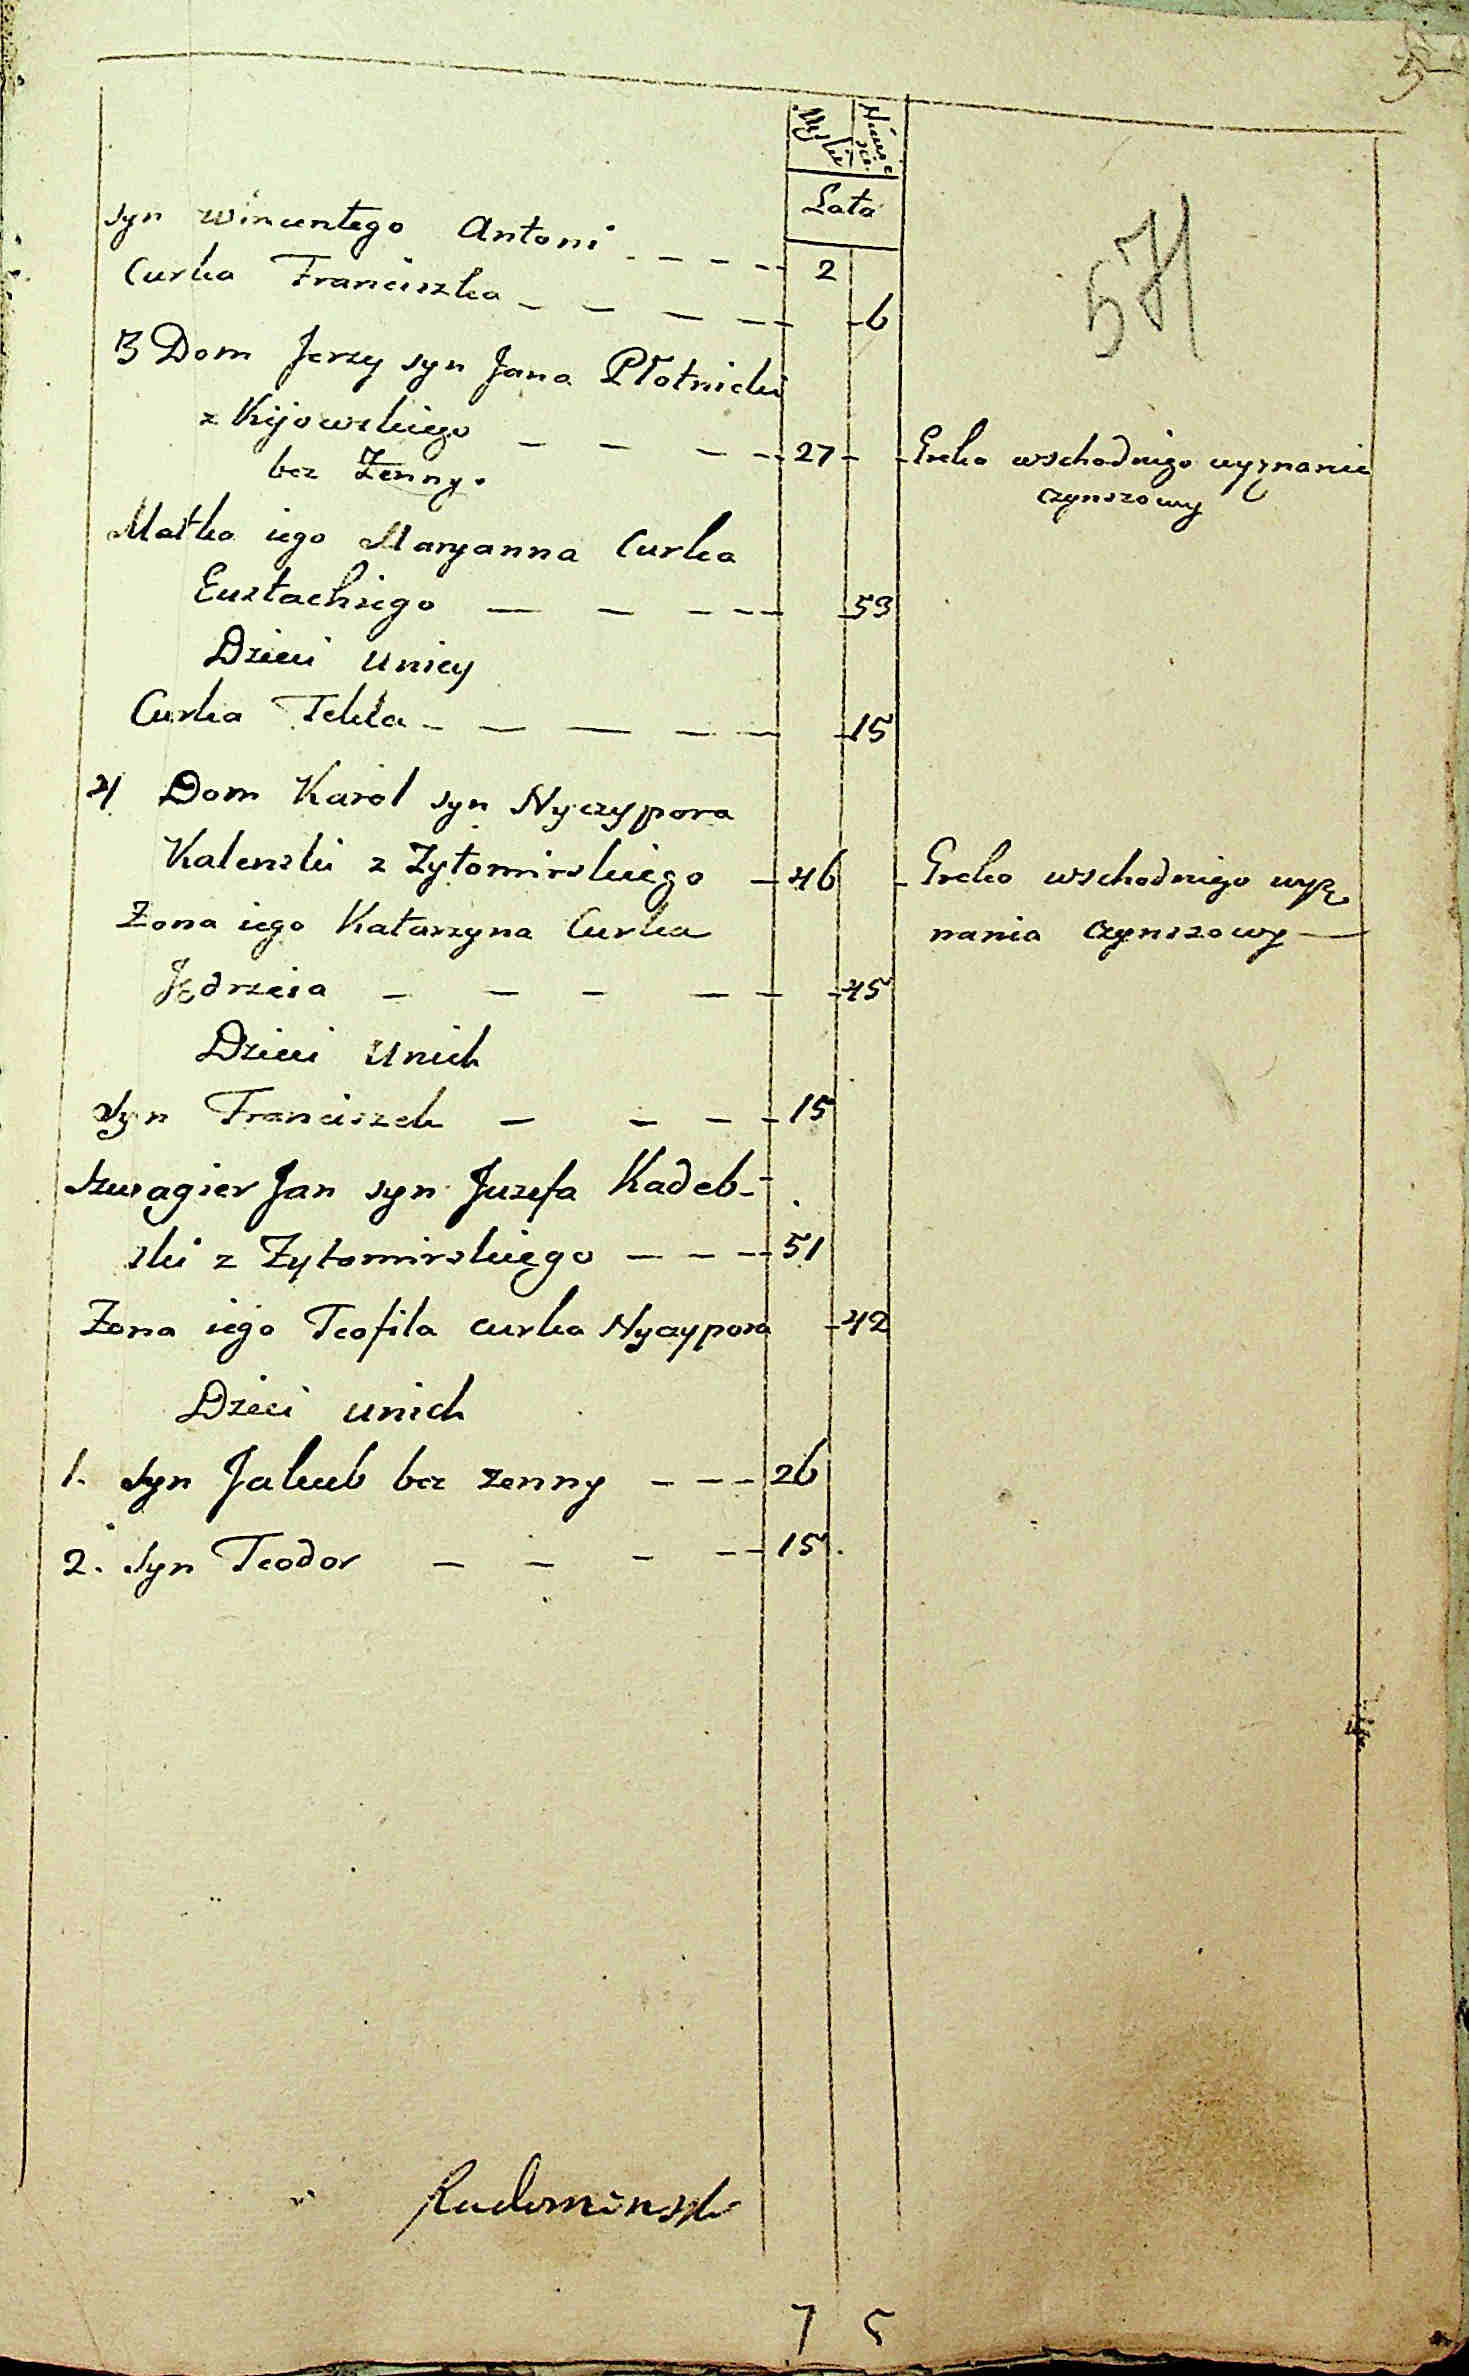 Lata
syn wincentego Antoni - - - - 2
Curka Franciszka - - - - - 6
3 Dom Jerzy syn Jana Płotnicki
z Kijowskiego - - - - 27 - - Greko wschodnigo wyznania
bez Żenny.
czynszowy
Matka iego Maryanna Curka
Eustachiego - - - - - 59
Dzieci unicy
Curka Tekla - - - - - 15
4 Dom Karol syn Nyczypora
Kalenski z Zytomirskiego - 46 - Greko wschodnigo wyz
Zona iego Katarzyna Curka
nania czynszowy -
Jędrzeia - - - - - - 45
Dzieci Unich
Syn Franciszek - - - - 15
Szwagier Jan syn Juzefa Kadeb-
ski z Zytomirskiego - - - 51
Zona iego Teofila curka Nyczypora - 42
Dzieci unich
1. Syn Jakub bez zenny - - - 26
2. Syn Teodor - - - - - 15.
7 5